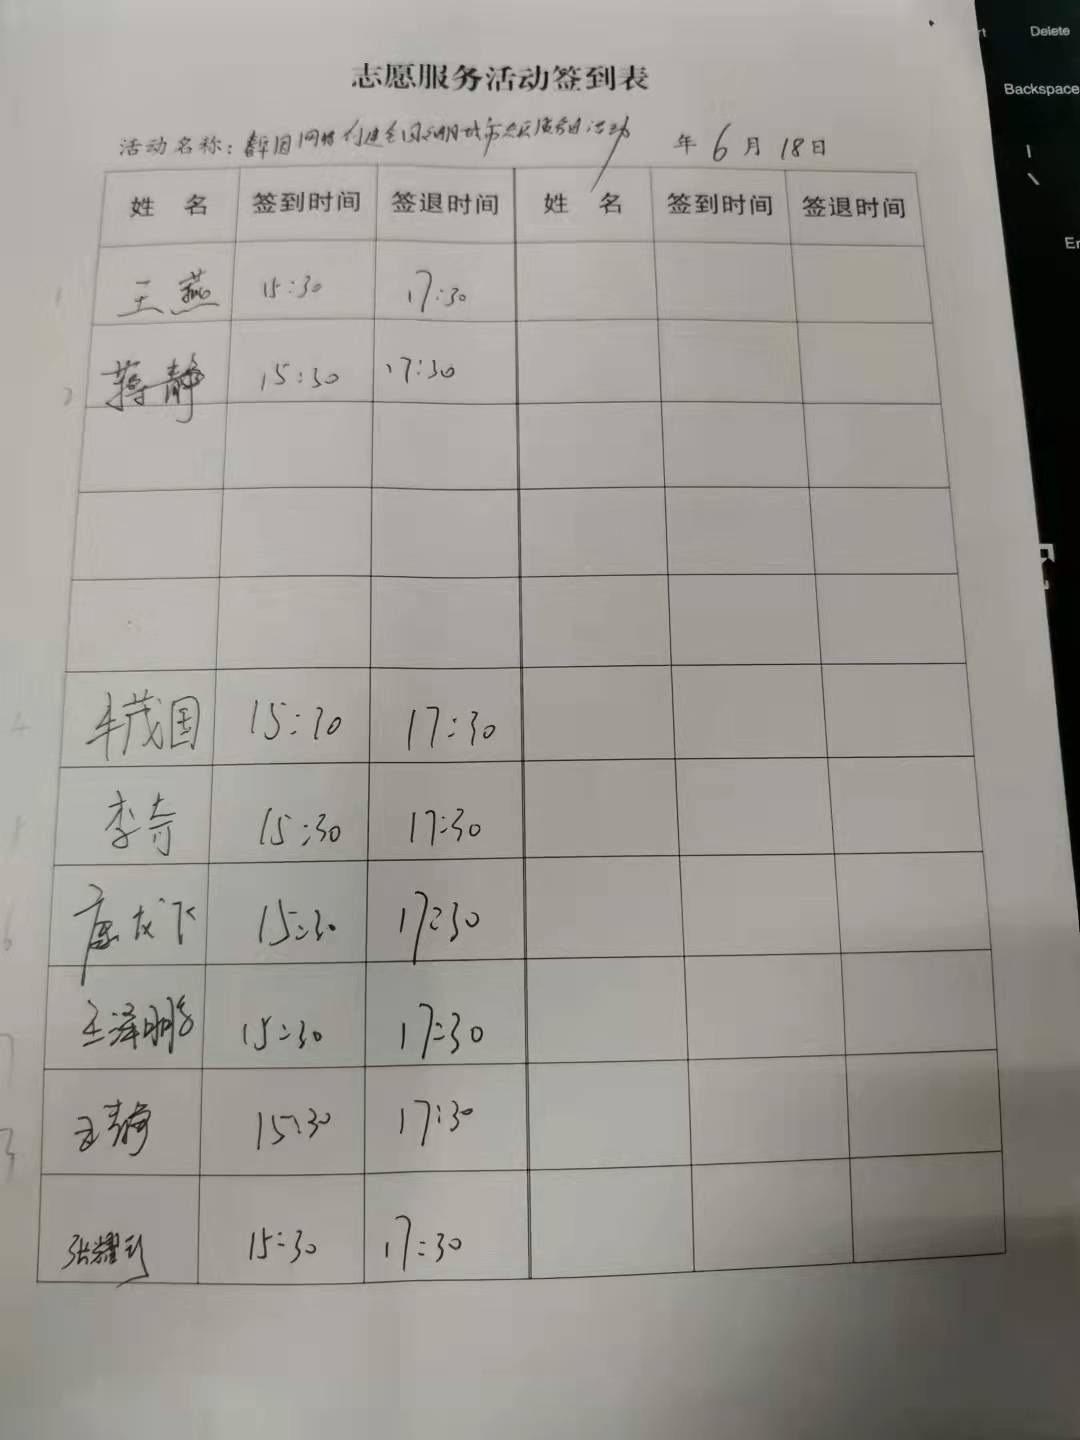 志愿服务活动签到表
活动名称： 年 6 月 18 日
姓 名 签到时间 签退时间 姓 名 签到时间 签退时间
王燕 15:30 17:30
蒋静 15:30 17:30
牛茂国 15:30 17:30
李奇 15:30 17:30
唐龙飞 15:30 17:30
王泽鹏 15:30 17:30
王静 15:30 17:30
张耀 15:30 17:30
Delete
Backspace